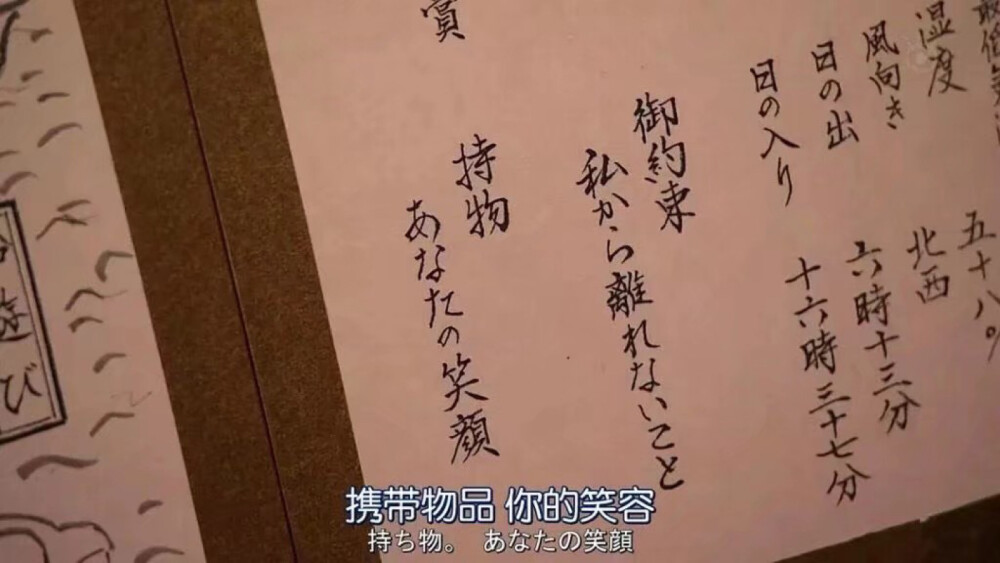 湿度 五十八%
風向き 北西
日の出 六時十三分
日の入り 十六時三十七分
御約束
私から離れないこと
持物
あなたの笑顔
遊び
携带物品 你的笑容
持ち物。 あなたの笑顔